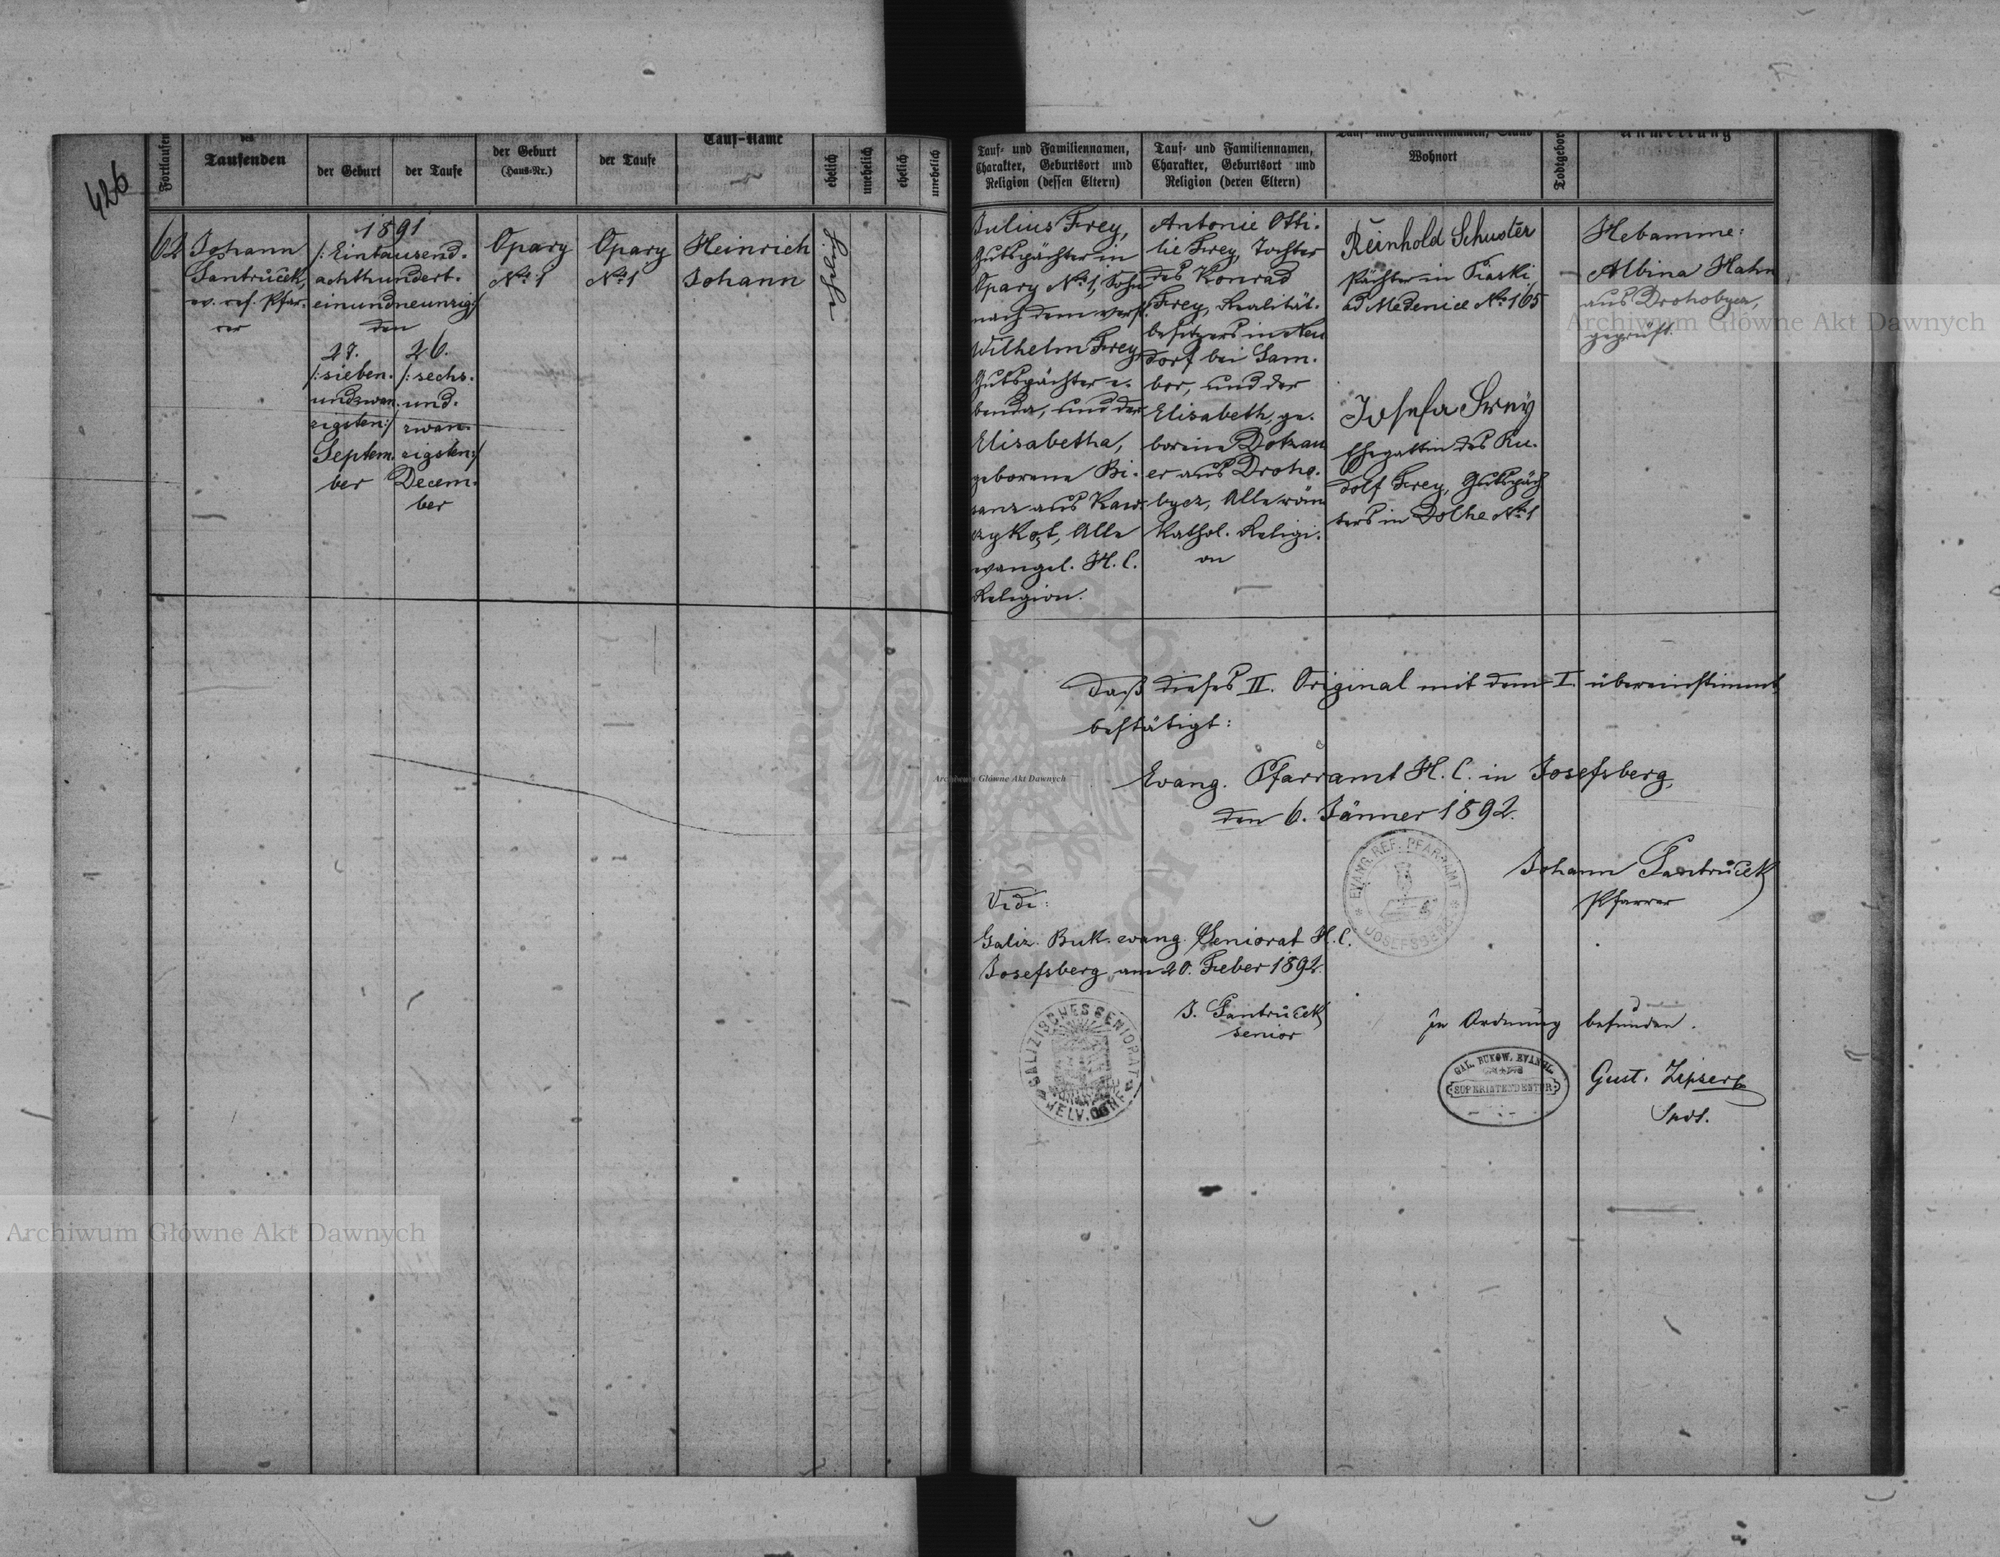 426
Fortlaufen
des
Taufenden
der Geburt
der Taufe
der Geburt
(Haus-Nr.)
der Taufe
Tauf-Name
ehelich
unehelich
ehelich
unehelich
62
Johann
Jantrůček,
ev. ref. Pfar-
rer
1891
/: Eintausend-
achthundert-
einundneunzig:/
den
27.
/: sieben-
undzwan-
zigsten:/
Septem-
ber
26.
/: sechs-
und-
zwan-
zigsten:/
Decem-
ber
Opary
No 1
Opary
No 1
Heinrich
Johann
Tauf- und Familiennamen,
Charakter, Geburtsort und
Religion (dessen Eltern)
Tauf- und Familiennamen,
Charakter, Geburtsort und
Religion (deren Eltern)
Tauf- und Familiennamen, Stand
Wohnort
Todtgebor
Anmerkung
Julius Frey,
Gutspächter in
Opary No 1, Sohn
nach dem verst.
Wilhelm Frey,
Gutspächter e-
benda, und der
Elisabetha,
geborene Bi-
sanz aus Kaw-
czykąt, Alle
evangel. H. C.
Religion.
Antonie Otti-
lie Frey, Tochter
des Konrad
Frey, Realität-
besitzers in Neu
dorf bei Sam-
bor, und der
Elisabeth, ge-
borene Dotzau
er aus Droho-
bycz, Alle röm
kathol. Religi-
on
Reinhold Schuster
Pächter in Piaski
ad Medenice No 165
Josefa Frey
Ehegattin des Ru-
dolf Frey, Gutspäch
ters in Dolhe No 1
Hebamme:
Albina Hahn
aus Drohobycz,
geprüft.
Daß dieses II. Original mit dem I. übereinstimmt
bestätigt:
Evang. Pfarramt H. C. in Josefsberg,
den 6. Jänner 1892.
EVANG. REF. PFARRAMT
JOSEFSBERG
Johann Jantrůček
Pfarrer
Vidi:
Galiz. Buk. evang. Seniorat H. C.
Josefsberg am 20. Feber 1892.
J. Jantrůček
senior
GALIZISCHES SENIORAT
HELV. CONF.
In Ordnung befunden.
GAL. BUKOW. EVANGL.
SUPERINTENDENTUR
Gust. Zipser
Supt.
Archiwum Główne Akt Dawnych
Archiwum Główne Akt Dawnych
Archiwum Główne Akt Dawnych
ARCHIWUM GŁÓWNE AKT DAWNYCH